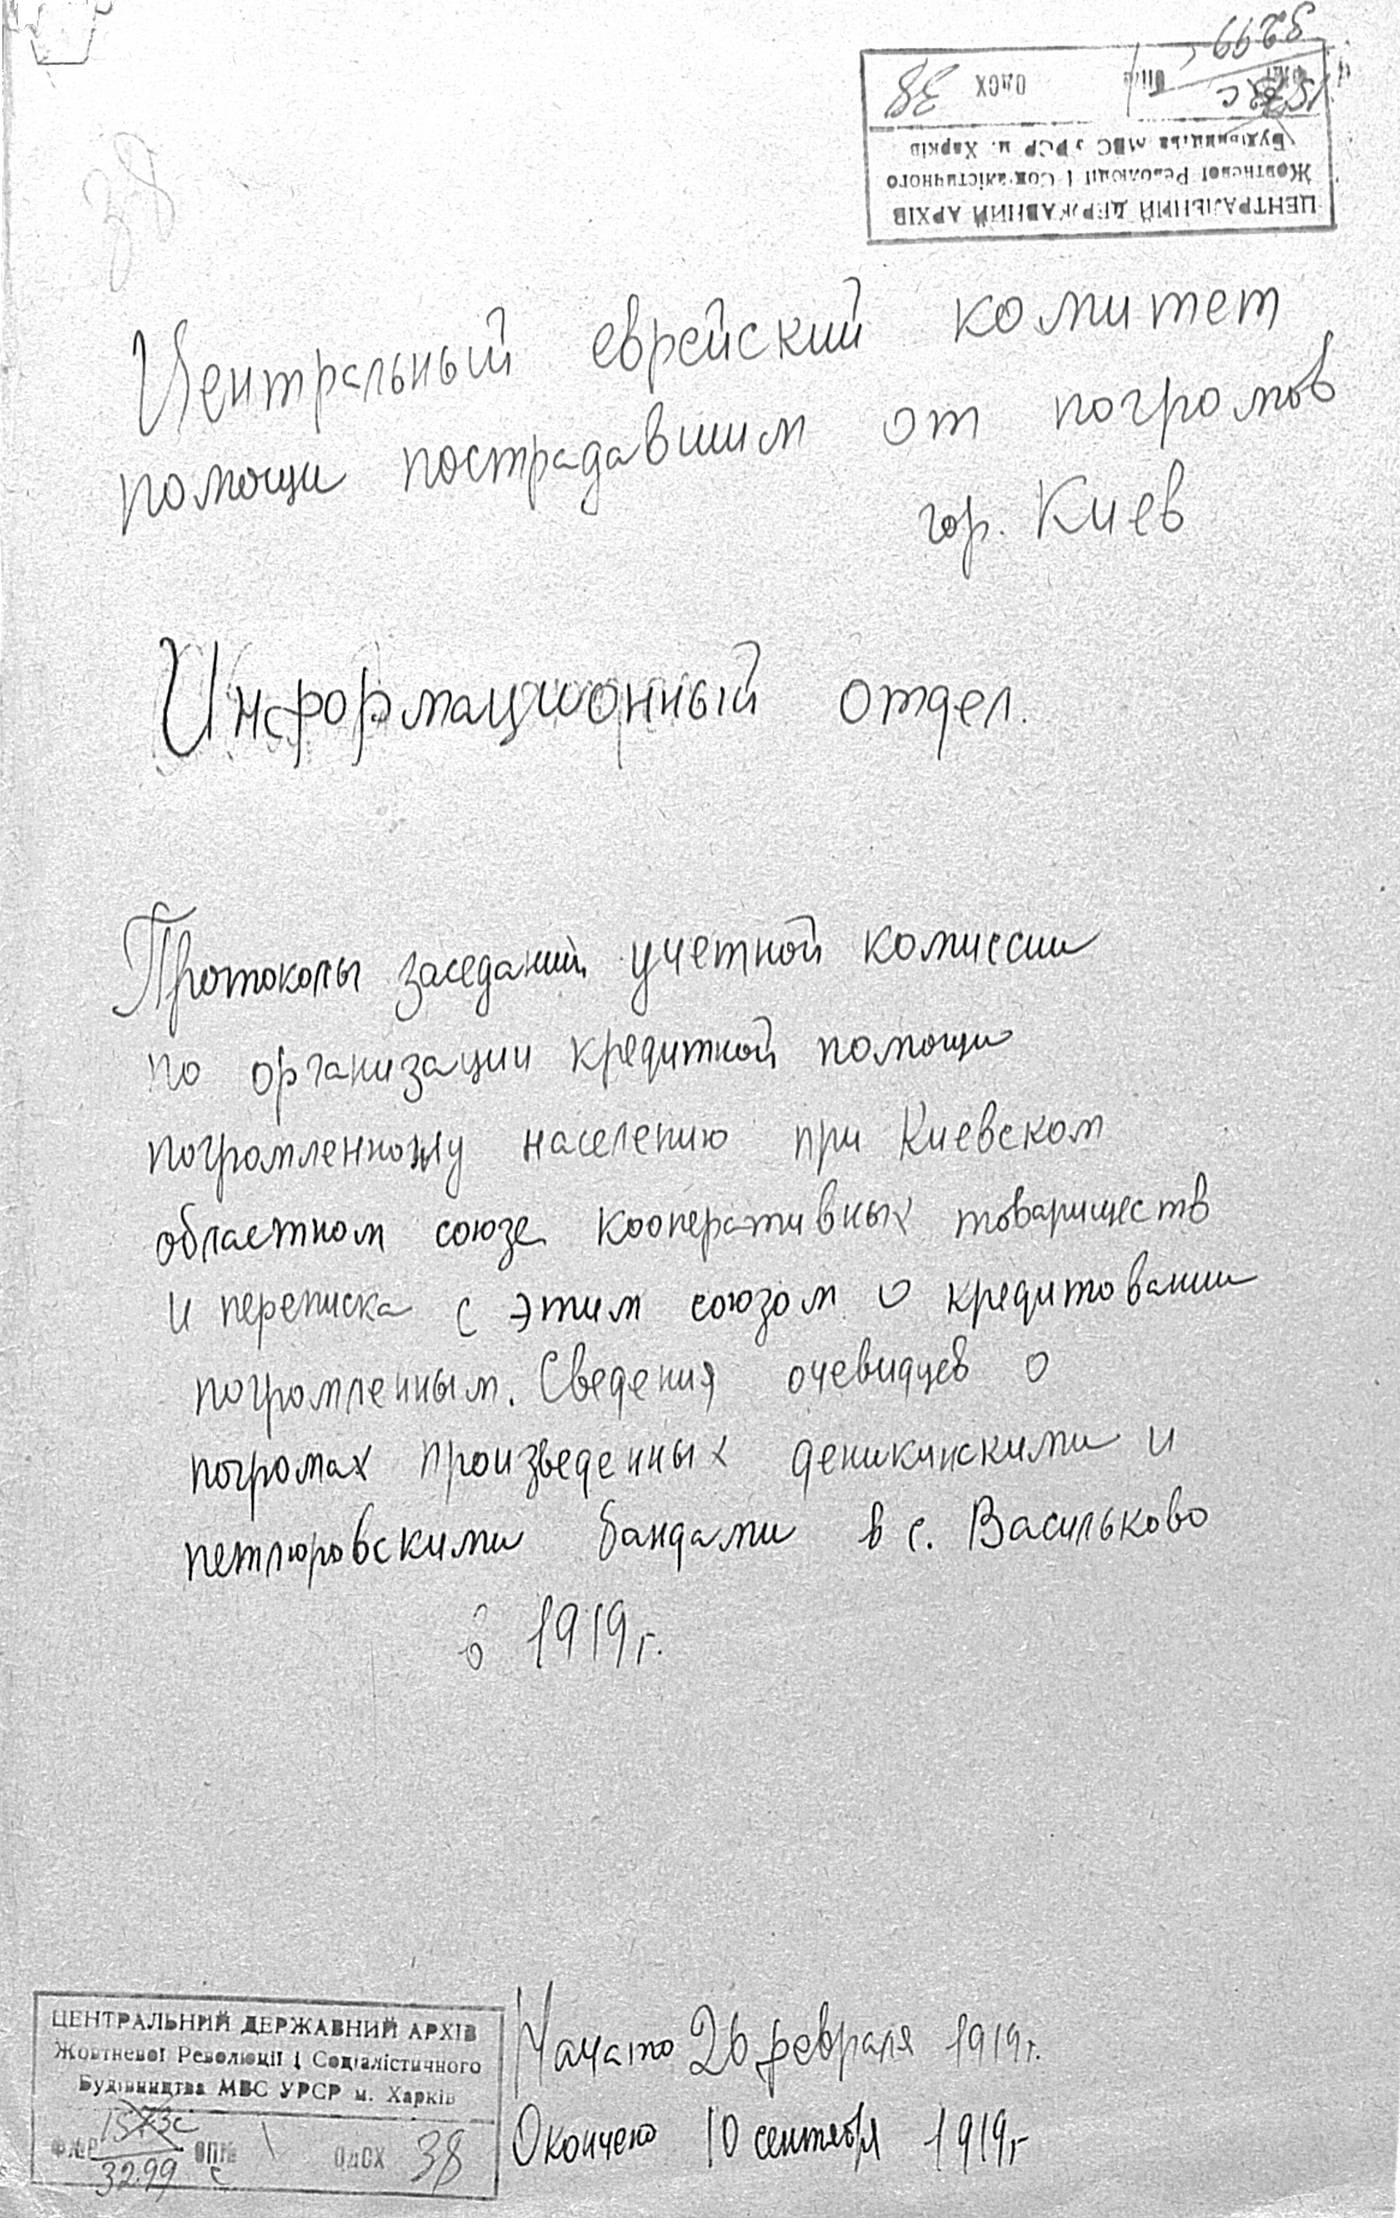 3299
ФЖР 1573с ОП№ 1 ОдСХ 38
Будівництва МВС УРСР м. Харків
Жовтневої Революції і Соціалістичного
ЦЕНТРАЛЬНИЙ ДЕРЖАВНИЙ АРХІВ
38
Центральный еврейский комитет
помощи пострадавшим от погромов
гор. Киев
Информационный отдел.
Протоколы заседаний учетной комиссии
по организации кредитной помощи
погромленному населению при Киевском
областном союзе кооперативных товариществ
и переписка с этим союзом о кредитовании
погромленным. Сведения очевидцев о
погромах произведенных деникинскими и
петлюровскими бандами в с. Васильково
в 1919г.
ЦЕНТРАЛЬНИЙ ДЕРЖАВНИЙ АРХІВ
Жовтневої Революції і Соціалістичного
Будівництва МВС УРСР м. Харків
ФЖР 1573с ОП№ 1 ОдСХ 38
3299 с
Начато 26 февраля 1919г.
Окончено 10 сентября 1919г